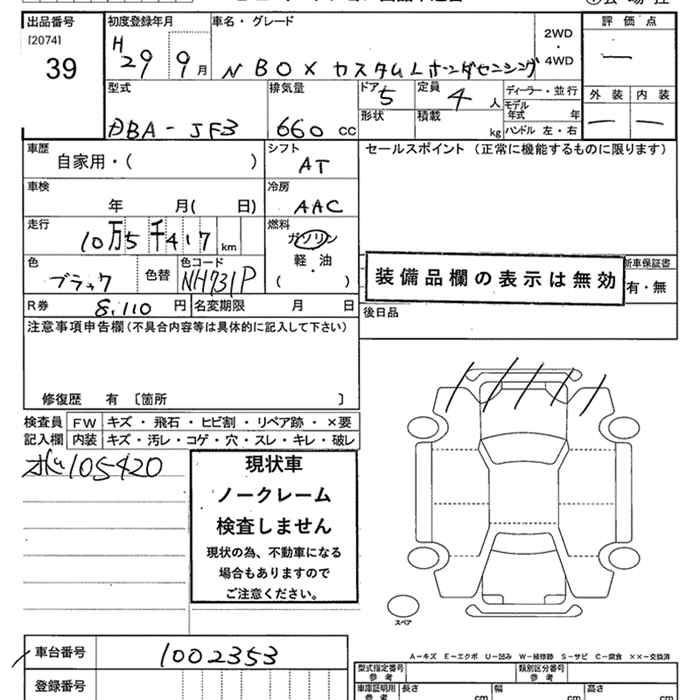 出品番号
[2074]
39
初度登録年月
H 29 9月
車名・グレード
N BOX カスタム L ホンダセンシング
2WD
・
4WD
評価点
—
外装 内装
— —
型式
DBA-JF3
排気量
660 cc
ドア 5
定員 4 人
ディーラー・並行
形状
積載 kg
モデル年式 年
ハンドル 左・右
車歴
自家用・( )
シフト
AT
セールスポイント (正常に機能するものに限ります)
車検
年 月( 日)
冷房
AAC
走行
10万5千417 km
燃料
ガソリン
軽油
・
( )
色
ブラック
色替
色コード
NH731P
装備品欄の表示は無効
新車保証書
有・無
R券 8,110 円
名変期限 月 日
後日品
注意事項申告欄(不具合内容等は具体的に記入して下さい)
修復歴 有 〔箇所 〕
検査員 FW キズ・飛石・ヒビ割・リペア跡・×要
記入欄 内装 キズ・汚レ・コゲ・穴・スレ・キレ・破レ
105420
現状車
ノークレーム
検査しません
現状の為、不動車になる
場合もありますので
ご注意ください。
スペア
A-キズ E-エクボ U-凹み W-補修跡 S-サビ C-腐食 ××-交換済
車台番号 1002353
登録番号
型式指定番号
参考
類別区分番号
参考
車庫証明用
参考
長さ cm
幅 cm
高さ cm